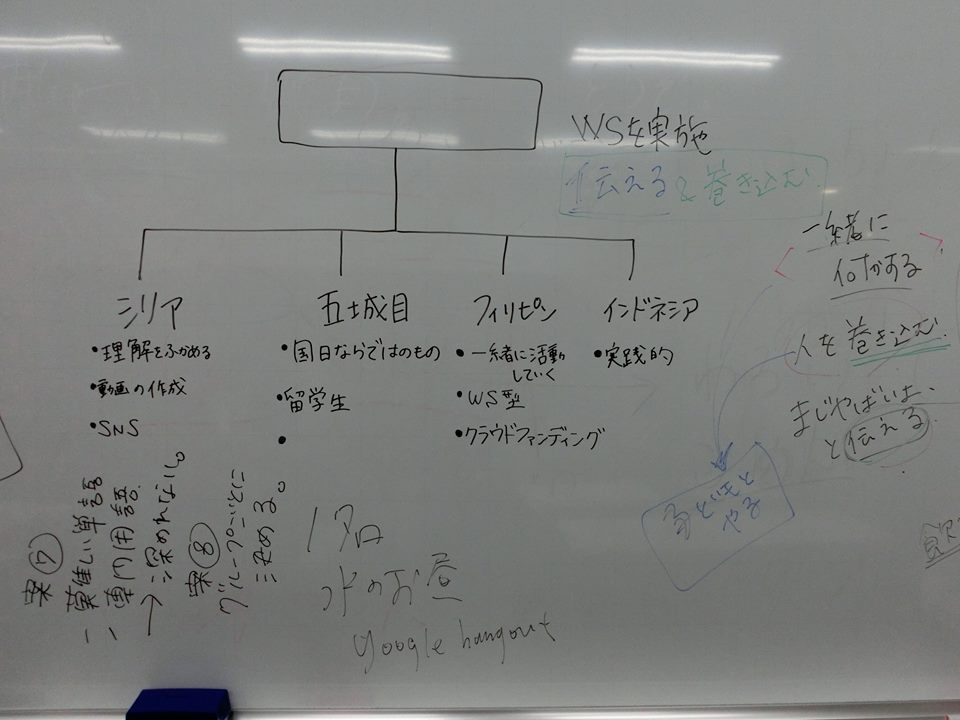 WSを実施
伝える & 巻き込む
一緒に
何かする
人を巻き込む
まじやばいよ、
と伝える。
子どもと
やる
シリア
・理解をふかめる
・動画の作成
・SNS
五城目
・国日ならではのもの
・留学生
・
フィリピン
・一緒に活動
していく
・WS型
・クラウドファンディング
インドネシア
・実践的
案⑦
難しい単語
専門用語
→深めれない。
案⑧
グループごとに
決める。
水のお昼
google hangout